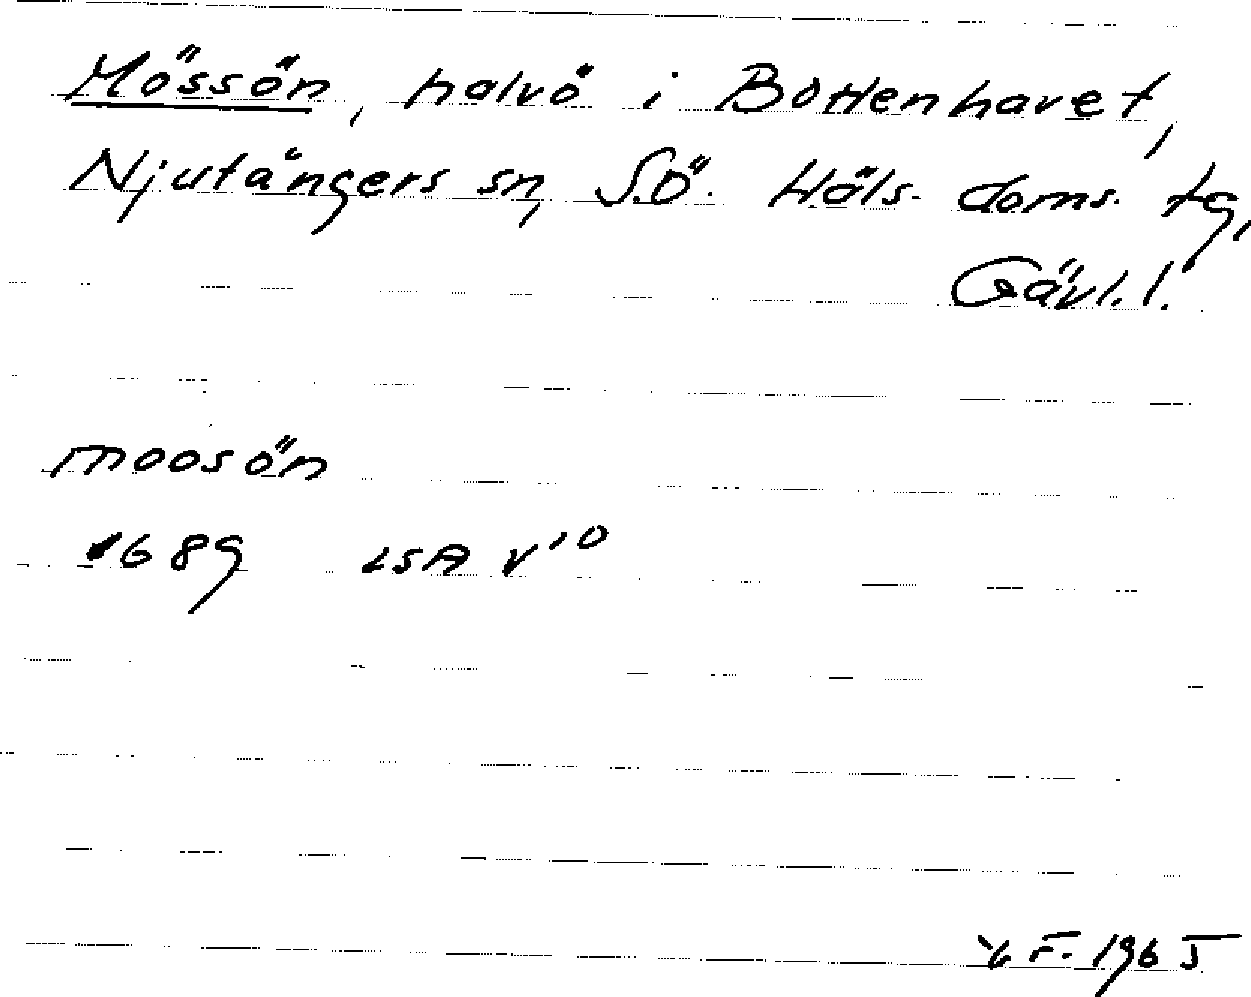 Mössön, halvö i Bottenhavet,
Njutångers sn, S.Ö. Häls. doms. tg,
Gävl. l.
moosön
1689 LSA V 10
F. 1965